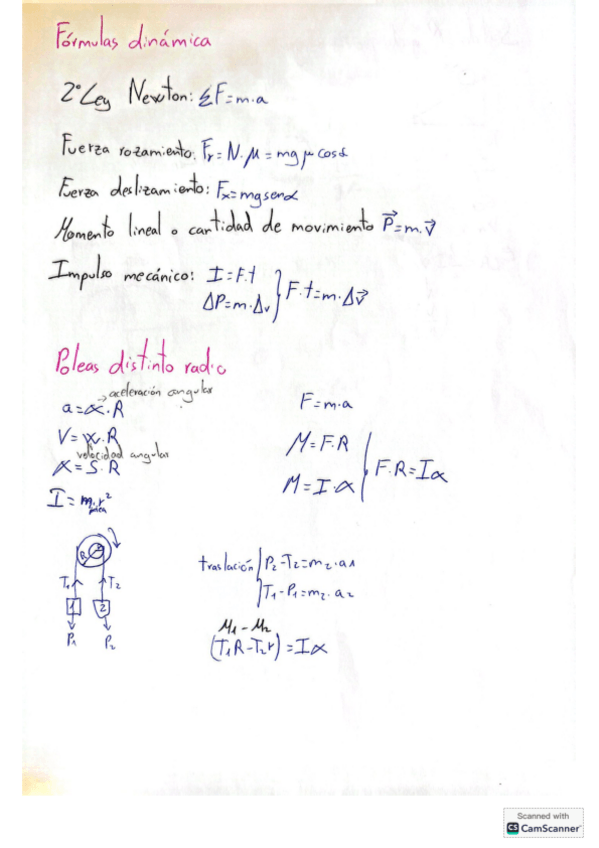 Fórmulas dinámica
2º Ley Newton: ΣF=m·a
Fuerza rozamiento: Fr=N·μ=mgμcosα
Fuerza deslizamiento: Fx=mgsenα
Momento lineal o cantidad de movimiento P⃗=m·v⃗
Impulso mecánico: I=F·t
ΔP=m·Δv
F·t=m·Δv⃗
Poleas distinto radio
→ aceleración angular
a=α·R
V=W·R
velocidad angular
X=S·R
I=m·r²
F=m·a
M=F·R
M=I·α
F·R=Iα
R
T1
T2
1
2
P1
P2
traslación
P2-T2=m2·a1
T1-P1=m2·a2
M1-M2
(T1R-T2r)=Iα
Scanned with
CS CamScanner